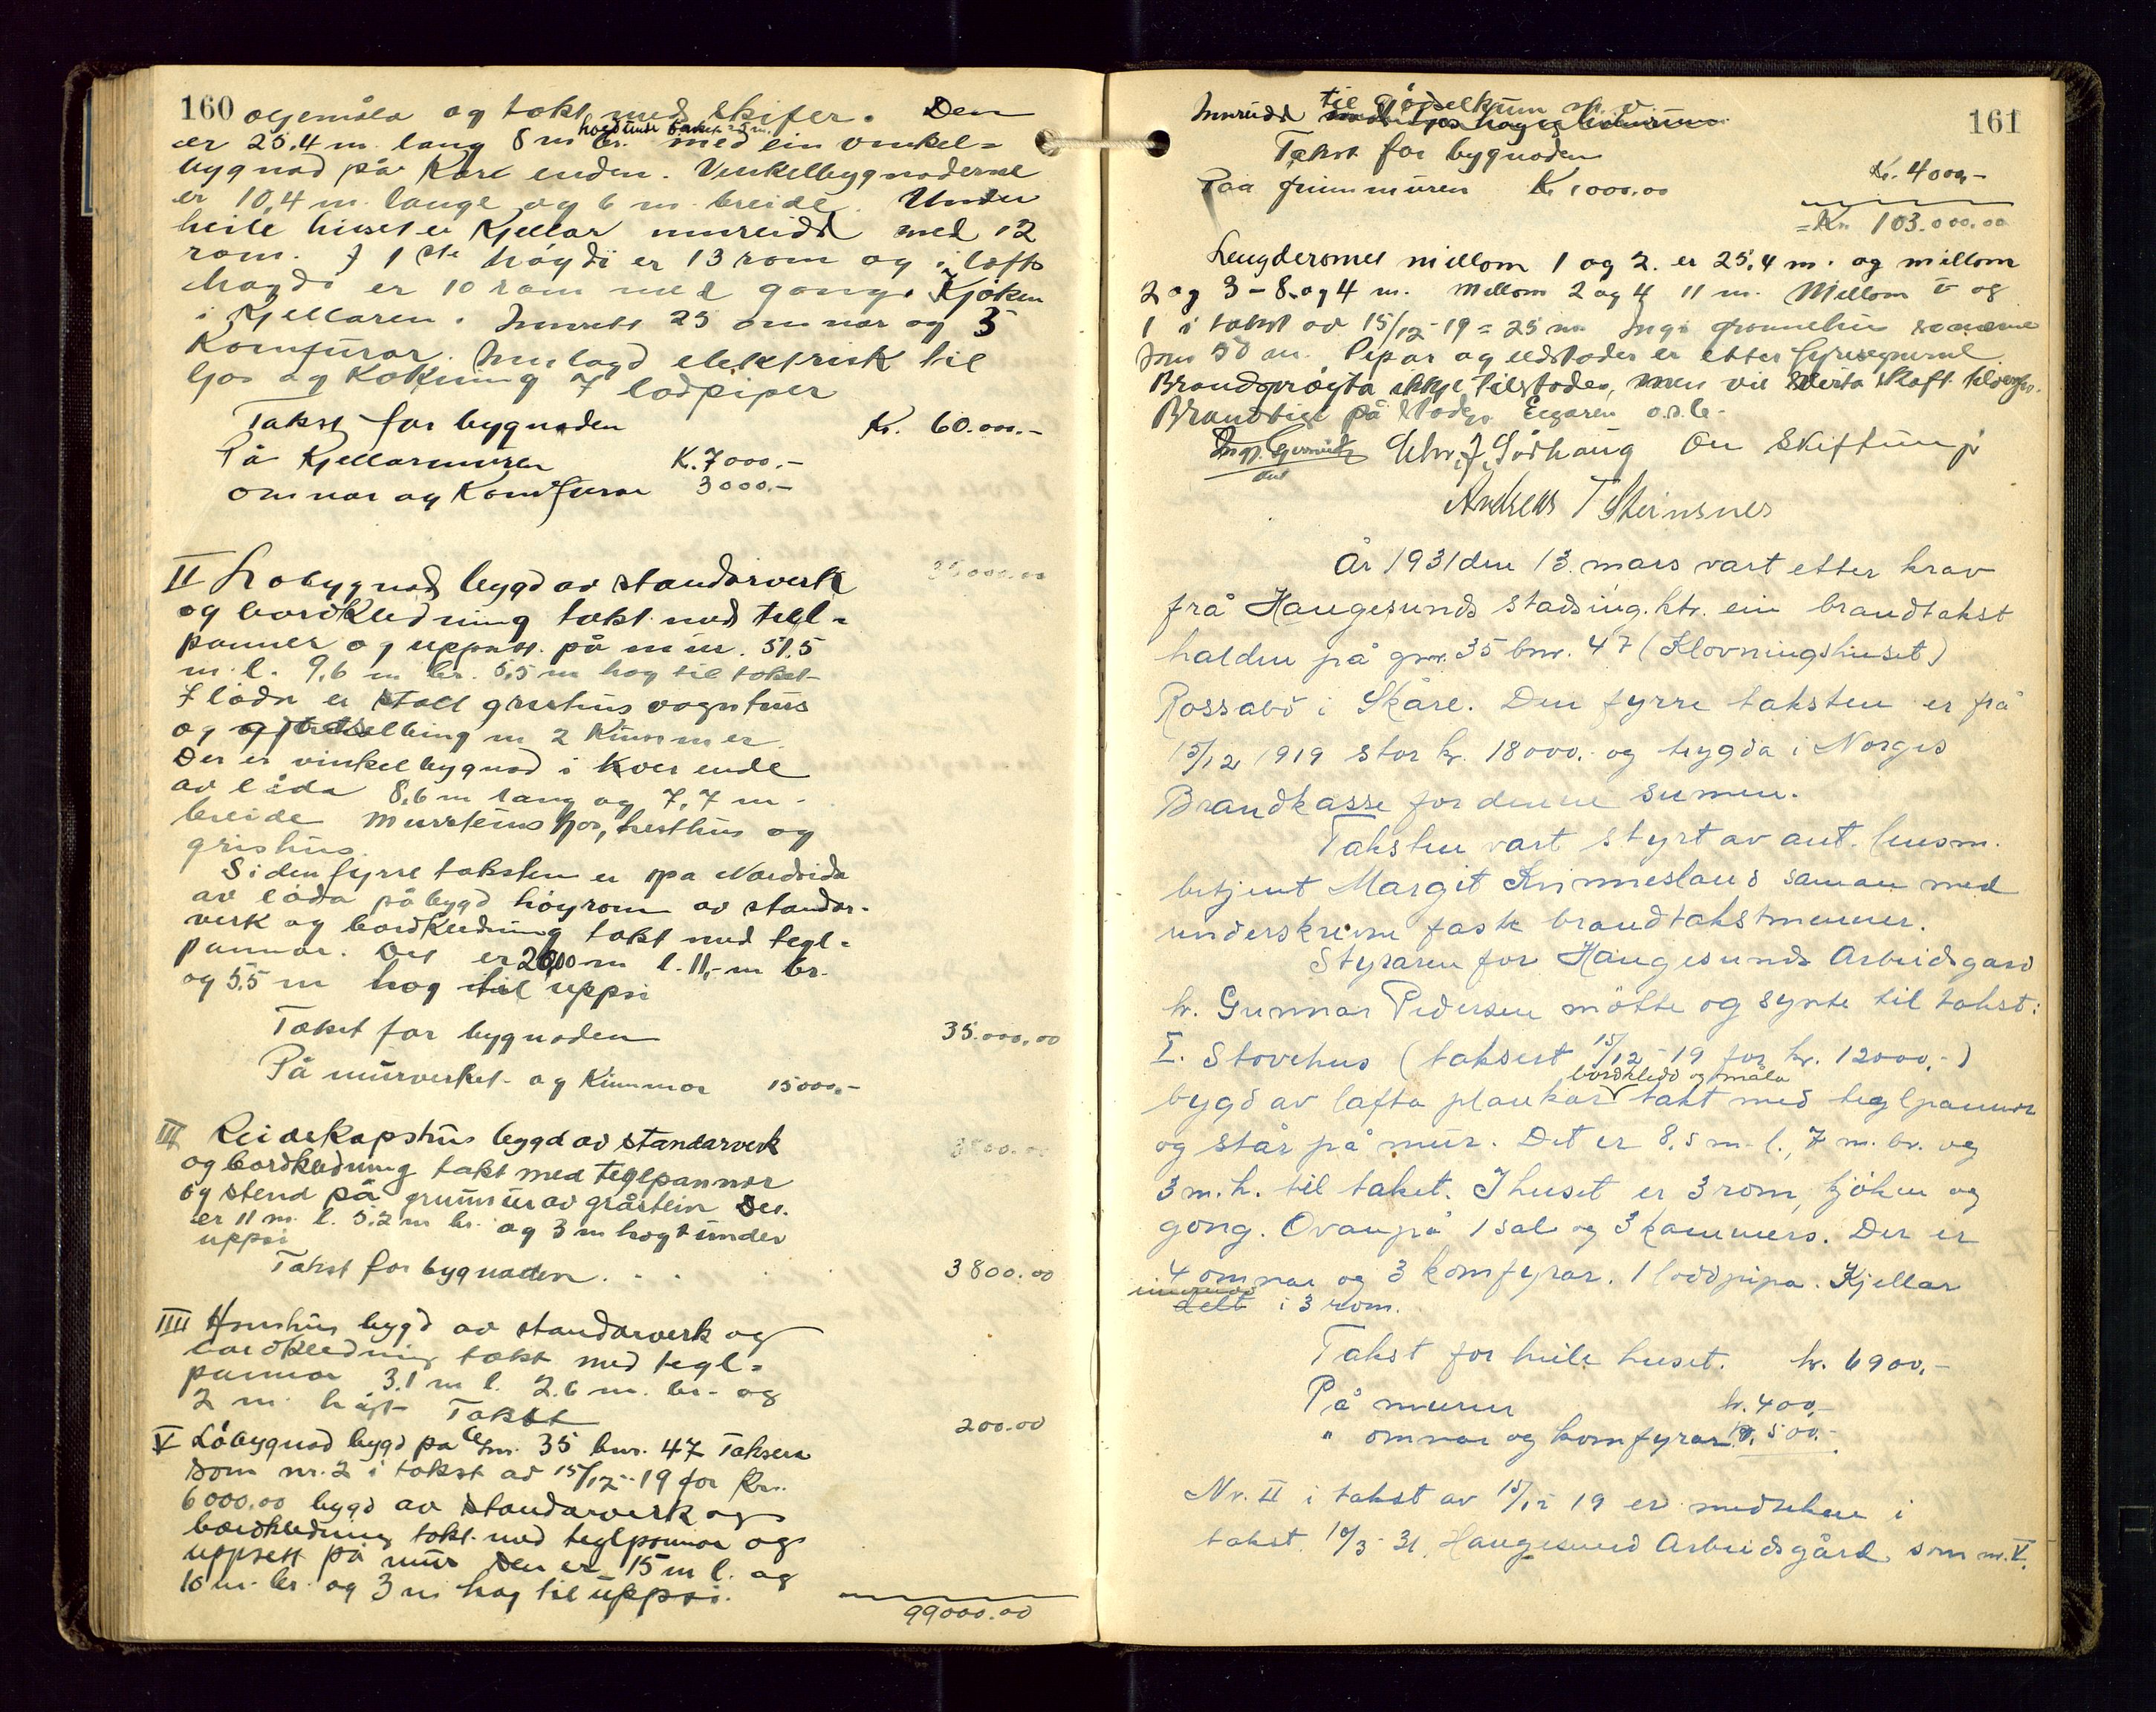 160 ogemåla og tekt med skifer. Den
høgd under taket
er 25,4 m. lang 8 m br. med ein vinkel-
bygnad på kvar enden. Vinkelbygnaderne
er 10,4 m. lange og 6 m. breide. Under
heile huset er Kjellar innreidd med 12
rom. I 1ste høgdi er 13 rom og i lofts
høgdi er 10 rom med gang. Kjøken
i Kjellaren. Innsett 25 omnar og 5
Komfurar. Innlagd elektrisk til
ljos og Kokning 7 lodpiper
Takst for bygnaden Kr. 60.000.-
På Kjellarmuren K. 7000.-
omnar og Komfurar 3000.-
35000.00
II Løbygnad bygd av standarverk
og bordkledning tekt med tegl-
panner og uppsett på mur. 51.5
m. l. 9,6 m br. 5,5 m høg til taket
I løda er stall grishus vognhus
og m 2 Kummer
Der er vinkelbygnad i kver ende
av løda 8,6 m lang og 7,7 m.
breide Murstens fjos, hesthus og
grishus.
Siden fyrre taksten er på Nordsida
av løda påbygd høyrom av standar-
verk og bordkledning tekt med tegl-
pannar. Det er 26,00 m l. 11,- m br.
og 5.5 m høg til uppsi
Takst for bygnaden 35.000,00
På murverket og Kummar 15000.-
III Reidskapshus bygd av standarverk 3800.00
og bordkledning tekt med teglpannar
og stend på grunnmur av gråstein Det
er 11 m. l. 5.2 m br. og 3 m høgt under
uppsi
Takst for bygnaden . . . 3800.00
IIII Hønshus bygd av standarverk og
bordkledning tekt med tegl-
pannar 3.1 m l. 2.6 m. br. og
2 m. høgt Takst 200.00
V Løbygnad bygd på Gnr. 35 bnr. 47 Taksert
som nr. 2 i takst av 15/12-19 for Kr.
6000.00 bygd av standarverk og
bordkledning tekt med teglpannar og
uppsett på mur Den er 15 m l. og
10 m. br. og 3 m høg til uppsi.
99000.00
161
til gödselkum m. v.
Innreidd
Takst for bygnaden Kr. 4000,-
Paa grunnmuren K 1000.00
= Kr. 103.000.00
Lengderomet millom 1 og 2. er 25,4 m. og millom
2 og 3 - 8. og 4 m. Millom 2 og 4 11 m. Millom V og
1 i takst av 15/12-19 = 25 m Ingi grannehus
som 50 m. Pipar og eldstader er etter fyresegnerne.
Brandprøyta ikkje tilstades, men vil verta skaft
Brandstige på stades. Eigaren o.s.b.
Chr. J. Sörhaug On Skiftun
Andreas T Steinsnes
År 1931 den 13. mars vart etter krav
frå Haugesunds stadsing.ktr. ein brandtakst
halden på gnr. 35 bnr. 47 (Klovningshuset)
Rossabö i Skåre. Den fyrre taksten er frå
15/12 1919 stor kr. 18000,- og trygda i Norges
Brandkasse for denne sumen.
Taksten vart styrt av aut. lensm.
betjent Margit Kvinnesland saman med
underskrevne faste brandtakstmenner.
Styraren for Haugesunds Arbeidsgard
hr. Gunnar Pedersen mötte og synte til takst:
I. Stovehus (taksert 15/12-19 for kr. 12000,-)
bordkledd og måla
bygd av lafta plankar tekt med teglpannar
og står på mur. Det er 8,5 m. l., 7 m. br. og
3 m. h. til taket. I huset er 3 rom, kjöken og
gong. Ovanpå 1 sal og 3 kammers. Der er
4 omnar og 3 komfyrar. 1 loddpipa. Kjellar
delt i 3 rom.
Takst for heile huset. kr. 6900,-
På muren kr. 400,-
" omnar og komfyrar kr. 500,-
Nr. II i takst av 15/12 19 er medteken i
takst 10/3-31. Haugesund Arbeidsgård som nr. V.